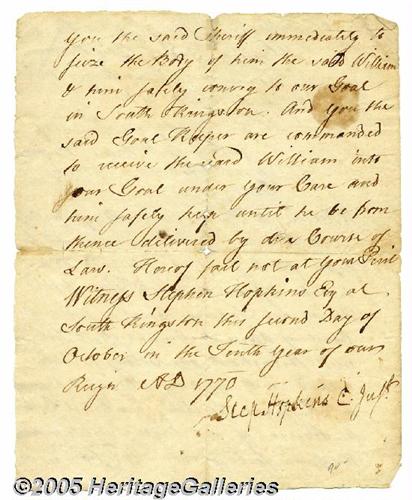 you the said Sheriff immediately to
seize the Body of him the said William
& him safely convey to our Goal
in South Kingston. And you the
said Goal Keeper are commanded
to receive the said William into
your Goal under your Care and
him safely keep until he be from
thence delivered by due Course of
Law. Hereof fail not at your Peril
Witness Stephen Hopkins Esq at
South Kingston this second Day of
October in the Tenth Year of our
Reign AD 1770
Step Hopkins C. Just.
©2005 HeritageGalleries